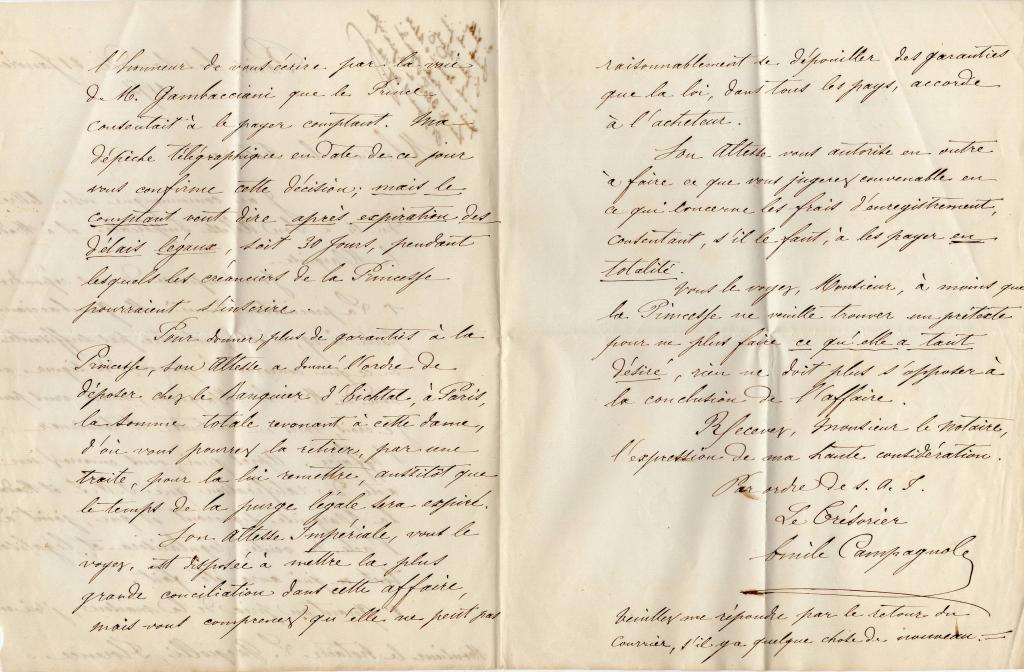 l'honneur de vous écrire par la voie
de M. Gambacciani que le Prince
consentait à le payer comptant. Ma
dépêche télégraphique en date de ce jour
vous confirme cette décision; mais le
comptant veut dire après expiration des
délais légaux, soit 30 Jours, pendant
lesquels les créanciers de la Princesse
pourraient s'inscrire.
Pour donner plus de garanties à la
Princesse, Son Altesse a donné l'ordre de
déposer chez le Banquier d'Eichtal, à Paris,
la somme totale revenant à cette dame,
d'où vous pourrez la retirer, par une
traite, pour la lui remettre, aussitôt que
le temps de la purge légale sera expiré.
Son Altesse Impériale, vous le
voyez, est disposée à mettre la plus
grande conciliation dans cette affaire,
mais vous comprenez qu'elle ne peut pas
raisonnablement se dépouiller des garanties
que la loi, dans tous les pays, accorde
à l'acheteur.
Son Altesse vous autorise en outre
à faire ce que vous jugerez convenable en
ce qui concerne les frais d'enregistrement,
consentant, s'il le faut, à les payer en
totalité.
Vous le voyez, Monsieur, à moins que
la Princesse ne veuille trouver un prétexte
pour ne plus faire ce qu'elle a tant
désiré, rien ne doit plus s'opposer à
la conclusion de l'affaire.
Recevez, Monsieur le Notaire,
l'expression de ma haute considération.
Par ordre de S. A. I.
Le Trésorier
Emile Campagnole
Veuillez me répondre par le retour du
Courrier, s'il y a quelque chose de nouveau.